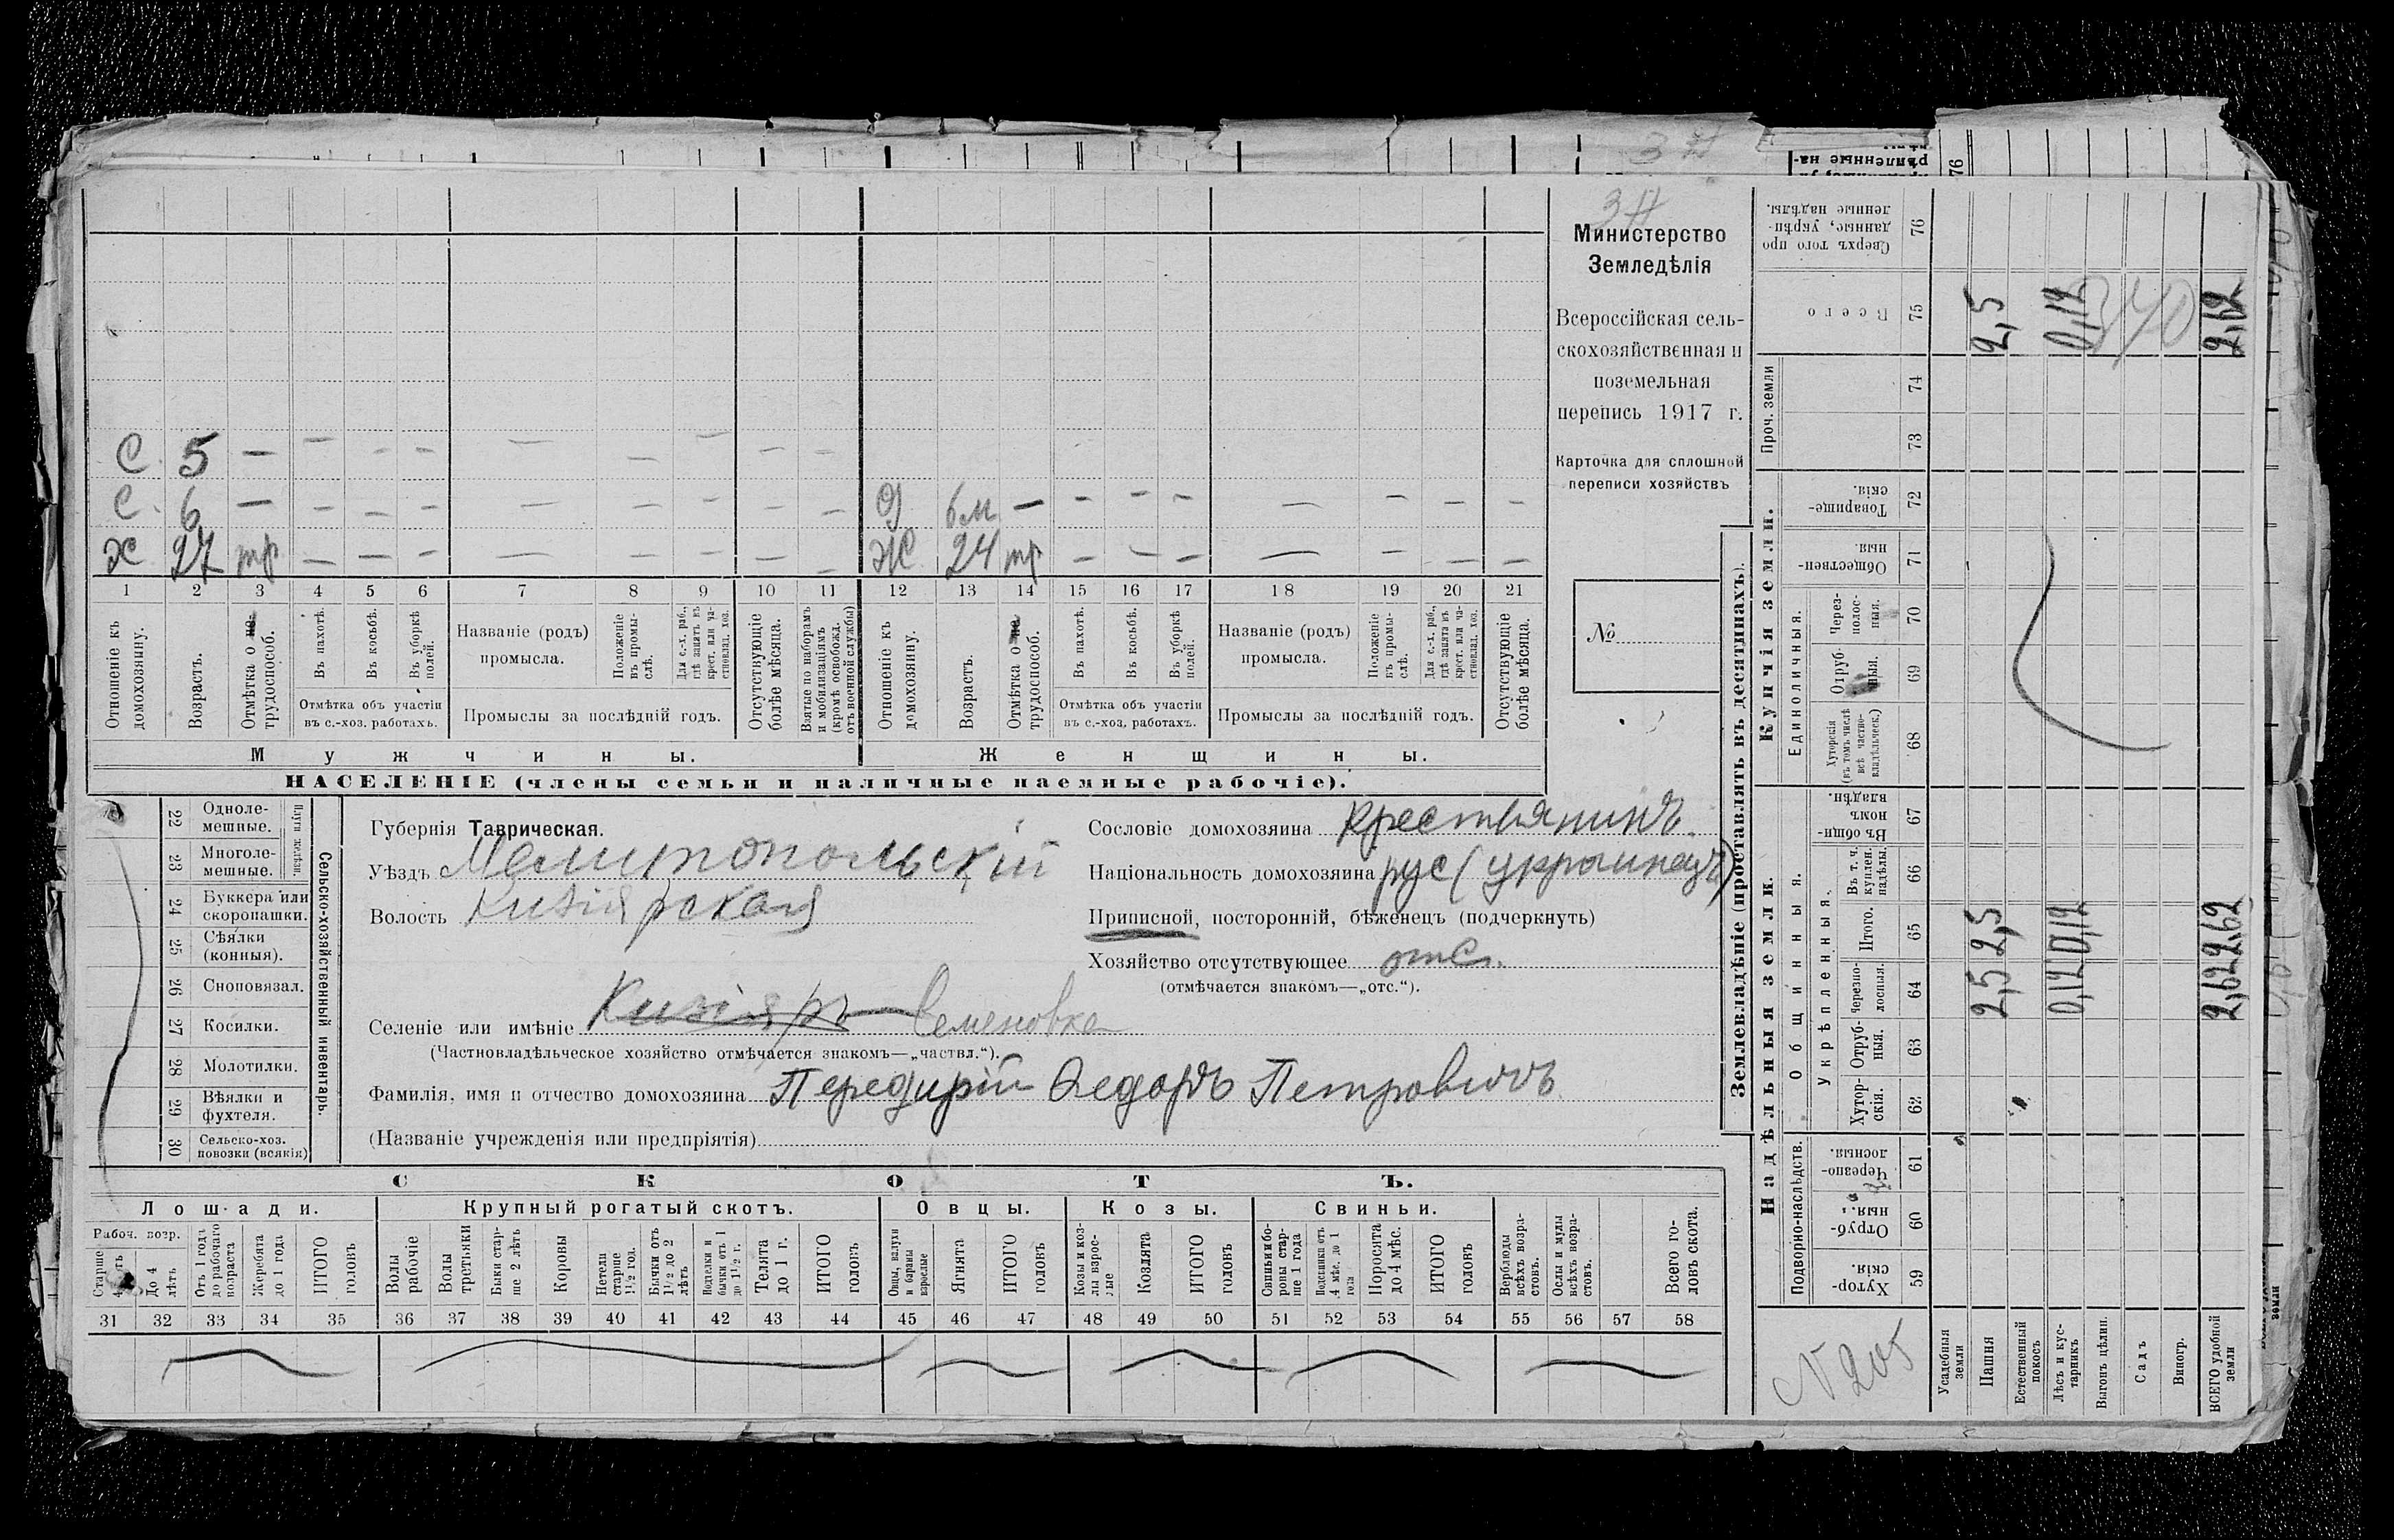 3 Н
Министерство
Земледѣлія
Всероссійская сель-
скохозяйственная и
поземельная
перепись 1917 г.
Карточка для сплошной
переписи хозяйствъ
№
С. 5 — — — — — — — — —
С. 6 — — — — — — — — — Д 6 м. — — — — — — — —
Х 27 тр — — — — — — — — Ж 24 тр — — — — — — —
1 2 3 4 5 6 7 8 9 10 11 12 13 14 15 16 17 18 19 20 21
Отношеніе къ домохозяину.
Возрастъ.
Отмѣтка о не- трудоспособ.
Въ пахотѣ.
Въ косьбѣ.
Въ уборкѣ полей.
Отмѣтка объ участіи
въ с.-хоз. работахъ.
Названіе (родъ)
промысла.
Положеніе въ промы- слѣ.
Для с.-х. раб., гдѣ занятъ въ крест. или ча- стновлад. хоз.
Промыслы за послѣдній годъ.
Отсутствующіе болѣе мѣсяца.
Взятые по наборамъ и мобилизаціямъ (кромѣ освобожд. отъ военной службы)
Отношеніе къ домохозяину.
Возрастъ.
Отмѣтка о не трудоспособ.
Въ пахотѣ.
Въ косьбѣ.
Въ уборкѣ полей.
Отмѣтка объ участіи
въ с.-хоз. работахъ.
Названіе (родъ)
промысла.
Положеніе въ промы- слѣ.
Для с.-х. раб., гдѣ занята въ крест. или ча- стновлад. хоз.
Промыслы за послѣдній годъ.
Отсутствующіе болѣе мѣсяца.
Мужчины. Женщины.
НАСЕЛЕНІЕ (члены семьи и наличные наемные рабочіе).
22 Одноле- мешные.
23 Многоле- мешные.
Плуги желѣзн.
24 Буккера или скоропашки.
25 Сѣялки (конныя).
26 Сноповязал.
27 Косилки.
28 Молотилки.
29 Вѣялки и фухтеля.
30 Сельско-хоз. повозки (всякія)
Сельско-хозяйственный инвентарь.
Губернія Таврическая.
Уѣздъ Мелитопольскій
Волость Кизіярская
Сословіе домохозяина крестьянинъ.
Національность домохозяина рус (украинецъ)
Приписной, посторонній, бѣженецъ (подчеркнуть)
Хозяйство отсутствующее отс.
(отмѣчается знакомъ—„отс.“).
Селеніе или имѣніе Кизіяръ Семеновка
(Частновладѣльческое хозяйство отмѣчается знакомъ—„частвл.“).
Фамилія, имя и отчество домохозяина Передирій Ѳедоръ Петровичъ
(Названіе учрежденія или предпріятія)
СКОТЪ.
Лошади. Крупный рогатый скотъ. Овцы. Козы. Свиньи.
Рабоч. возр.
Старше 4 лѣтъ
До 4 лѣтъ
Отъ 1 годъ до рабочаго возраста
Жеребята до 1 года
ИТОГО головъ
Волы рабочіе
Волы третьяки
Быки стар- ше 2 лѣтъ
Коровы
Нетели старше 1½ год.
Бычки отъ 1½ до 2 лѣтъ
Подтелки и бычки отъ 1 до 1½ г.
Телята до 1 г.
ИТОГО головъ
Овцы, валухи и бараны взрослые
Ягнята
ИТОГО головъ
Козы и коз- лы взрос- лые
Козлята
ИТОГО головъ
Свиньи и бо- ровы стар- ше 1 года
Подсвинки отъ 4 мѣс. до 1 года
Поросята до 4 мѣс.
ИТОГО головъ
Верблюды всѣхъ возра- стовъ.
Ослы и мулы всѣхъ возра- стовъ.
Всего го- ловъ скота.
31 32 33 34 35 36 37 38 39 40 41 42 43 44 45 46 47 48 49 50 51 52 53 54 55 56 57 58
Землевладѣніе (проставлять въ десятинахъ).
Надѣльныя земли.
Купчія земли.
Проч. земли
Подворно-наслѣдств.
Общинныя.
Укрѣпленныя.
Единоличныя.
Хутор- скія. 59
Отруб- ныя. 60
Черезпо- лосныя. 61
Хутор- скія. 62
Отруб- ныя. 63
Черезпо- лосныя. 64
Итого. 65
Въ т. ч. куплен. надѣлы. 66
Въ общи- номъ владѣн. 67
Хуторскія (въ томъ числѣ всѣ частно- владѣльческ.) 68
Отруб- ныя. 69
Через- полос- ныя. 70
Обществен- ныя. 71
Товарище- скія. 72
73
74
Всего 75
Сверхъ того про данные, укрѣп- ленные надѣлы. 76
Усадебныя земли
Пашня 2,5 2,5 2,5
Естественный покосъ
Лѣсъ и кус- тарникъ 0,12 0,12 0,12
Выгонъ цѣлин.
Садъ
Виногр.
ВСЕГО удобной земли 2,62 2,62 2,62
340
N 205